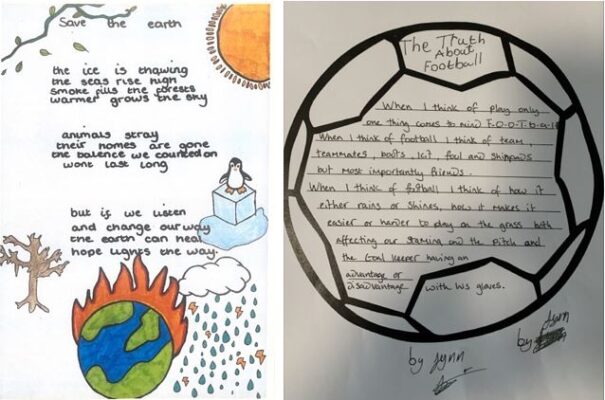 Save the earth
the ice is thawing
the seas rise high
smoke fills the forests
warmer grows the sky
animals stray
their homes are gone
the balence we counted on
wont last long
but if we listen
and change our way
the earth can heal
hope lights the way.
The Truth
About
Football
When I think of play only
one thing comes to mind F-O-O-T-b-a-ll
When I think of football I think of team,
teammates, boots, kit, foul and shinpads
but most importantly friends.
When I think of football I think of how it
either rains or shines, how it makes it
easier or harder to play on the grass both
affecting our stamina and the pitch and
the Goal keeper having an
advantage or
disadvantage with his gloves.
by Jynn
by